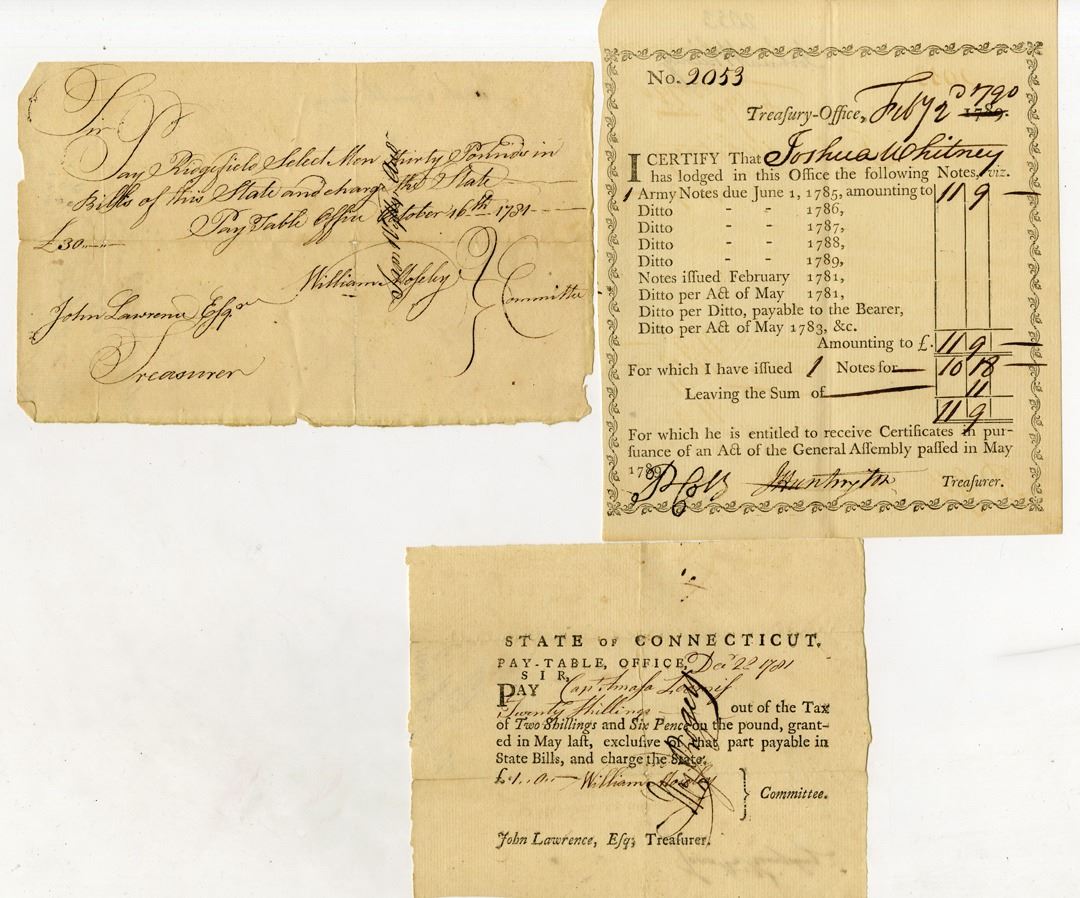 Sir
Pay Ridgefield Select Men thirty Pounds in
Bills of this State and charge the State
Pay Table Office October 16th 1781
£30
William Moseley } Committee
John Lawrence Esqr
Treasurer
No. 2053
Treasury-Office, Feby 2d 1790 1789.
I CERTIFY That Joshua Whitney
has lodged in this Office the following Notes, viz.
1 Army Notes due June 1, 1785, amounting to 11 9
Ditto - 1786,
Ditto - - 1787,
Ditto - - 1788,
Ditto - - 1789,
Notes issued February 1781,
Ditto per Act of May 1781,
Ditto per Ditto, payable to the Bearer,
Ditto per Act of May 1783, &c.
Amounting to £. 11 9
For which I have issued 1 Notes for 10 18
Leaving the Sum of 11
11 9
For which he is entitled to receive Certificates in pur-
suance of an Act of the General Assembly passed in May
1789.
J Huntington Treasurer.
STATE OF CONNECTICUT.
PAY-TABLE, OFFICE, Decr 22 1781
SIR,
PAY Capt Amasa Loomis
Twenty Shillings out of the Tax
of Two Shillings and Six Pence on the pound, grant-
ed in May last, exclusive of that part payable in
State Bills, and charge the State.
£1..0.. William Moseley } Committee.
John Lawrence, Esq; Treasurer.